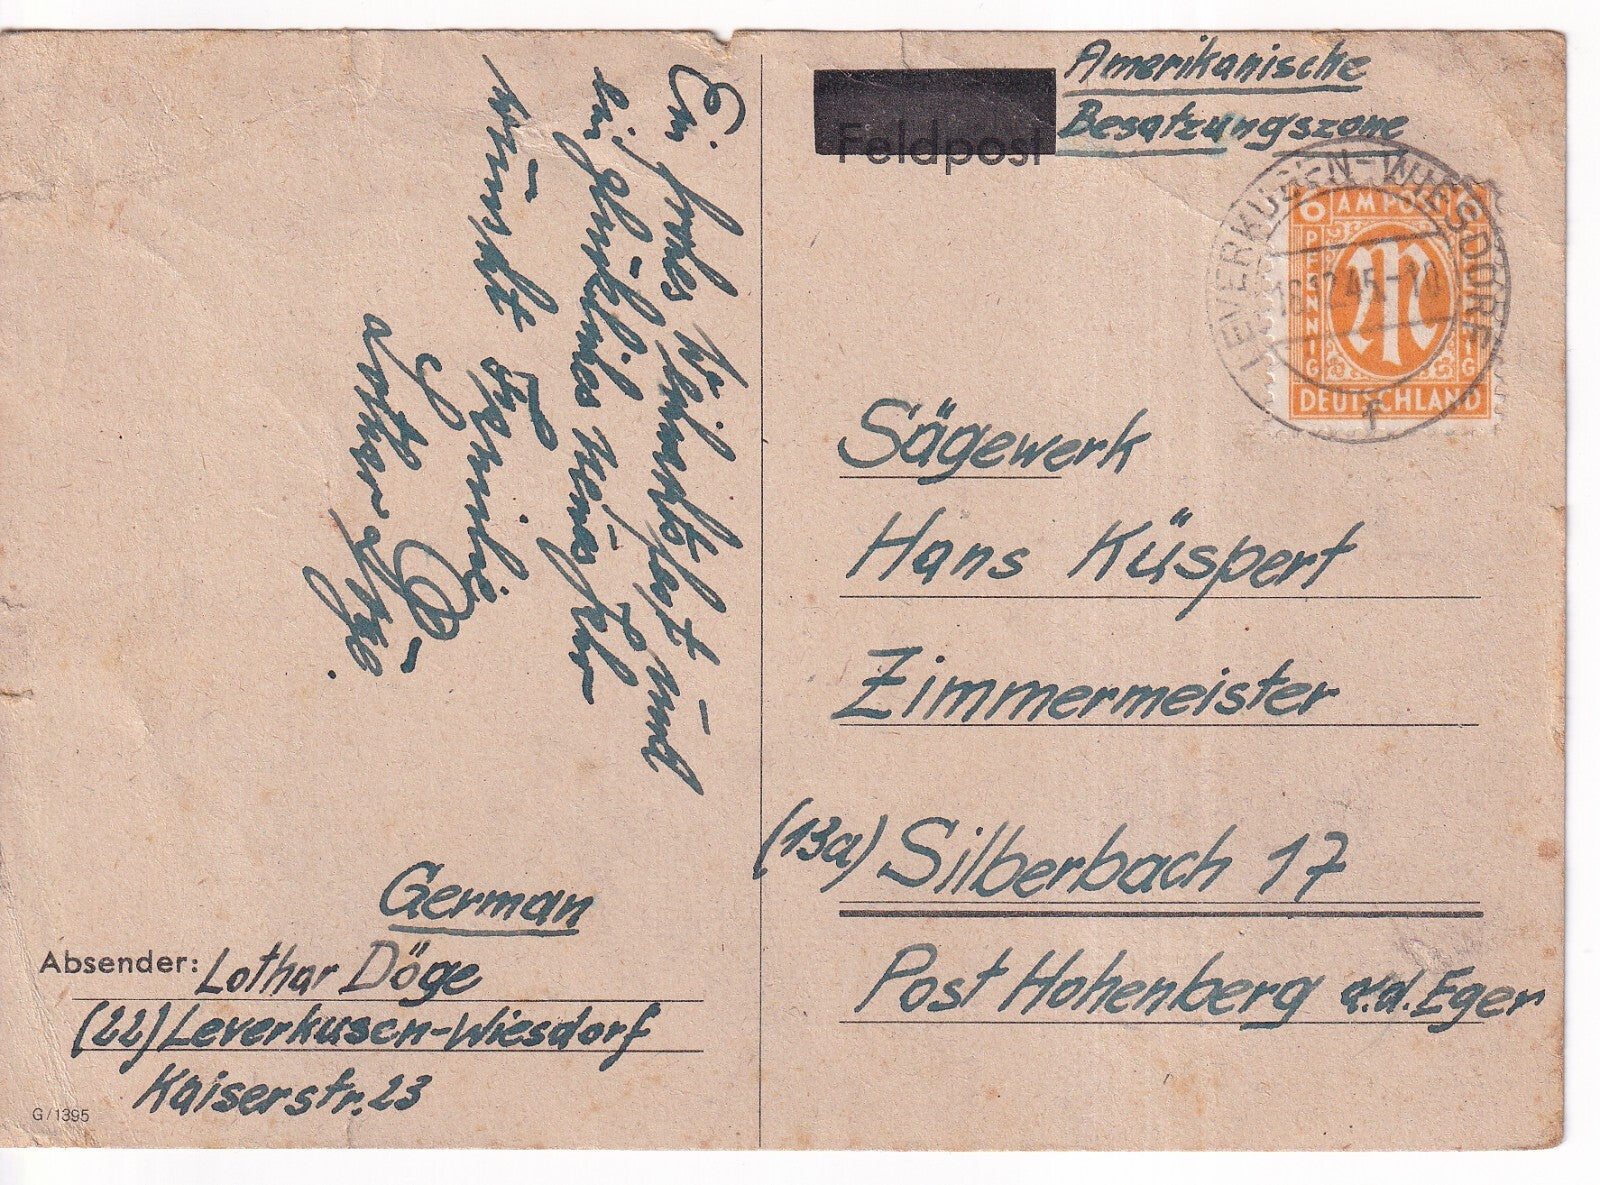 Ein frohes Weihnachtsfest und
ein glückliches neues Jahr
wünscht Familie
Lothar Döge.
German
Absender: Lothar Döge
(22) Leverkusen-Wiesdorf
Kaiserstr. 23
G/1395
Feldpost
Amerikanische
Besatzungszone
LEVERKUSEN-WIESDORF
18.12.45-10
6 AM POST 6
PFENNIG
PFENNIG
M
DEUTSCHLAND
Sägewerk
Hans Küspert
Zimmermeister
(13a) Silberbach 17
Post Hohenberg a.d. Eger